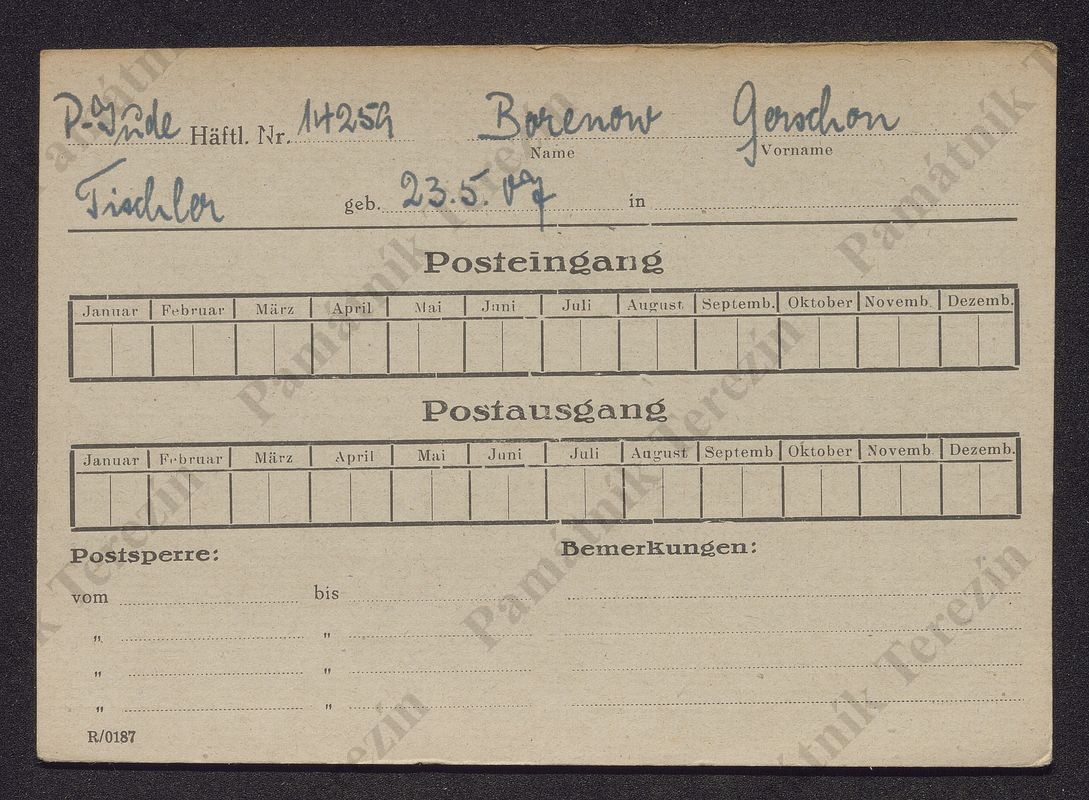 P-Jude Häftl. Nr. 14259 Borenow Gerschon
Name Vorname
Tischler geb. 23.5.07 in
Posteingang
Januar Februar März April Mai Juni Juli August Septemb. Oktober Novemb. Dezemb.
Postausgang
Januar Februar März April Mai Juni Juli August Septemb Oktober Novemb. Dezemb.
Postsperre: Bemerkungen:
vom bis
" "
" "
" "
R/0187
Památník Terezín